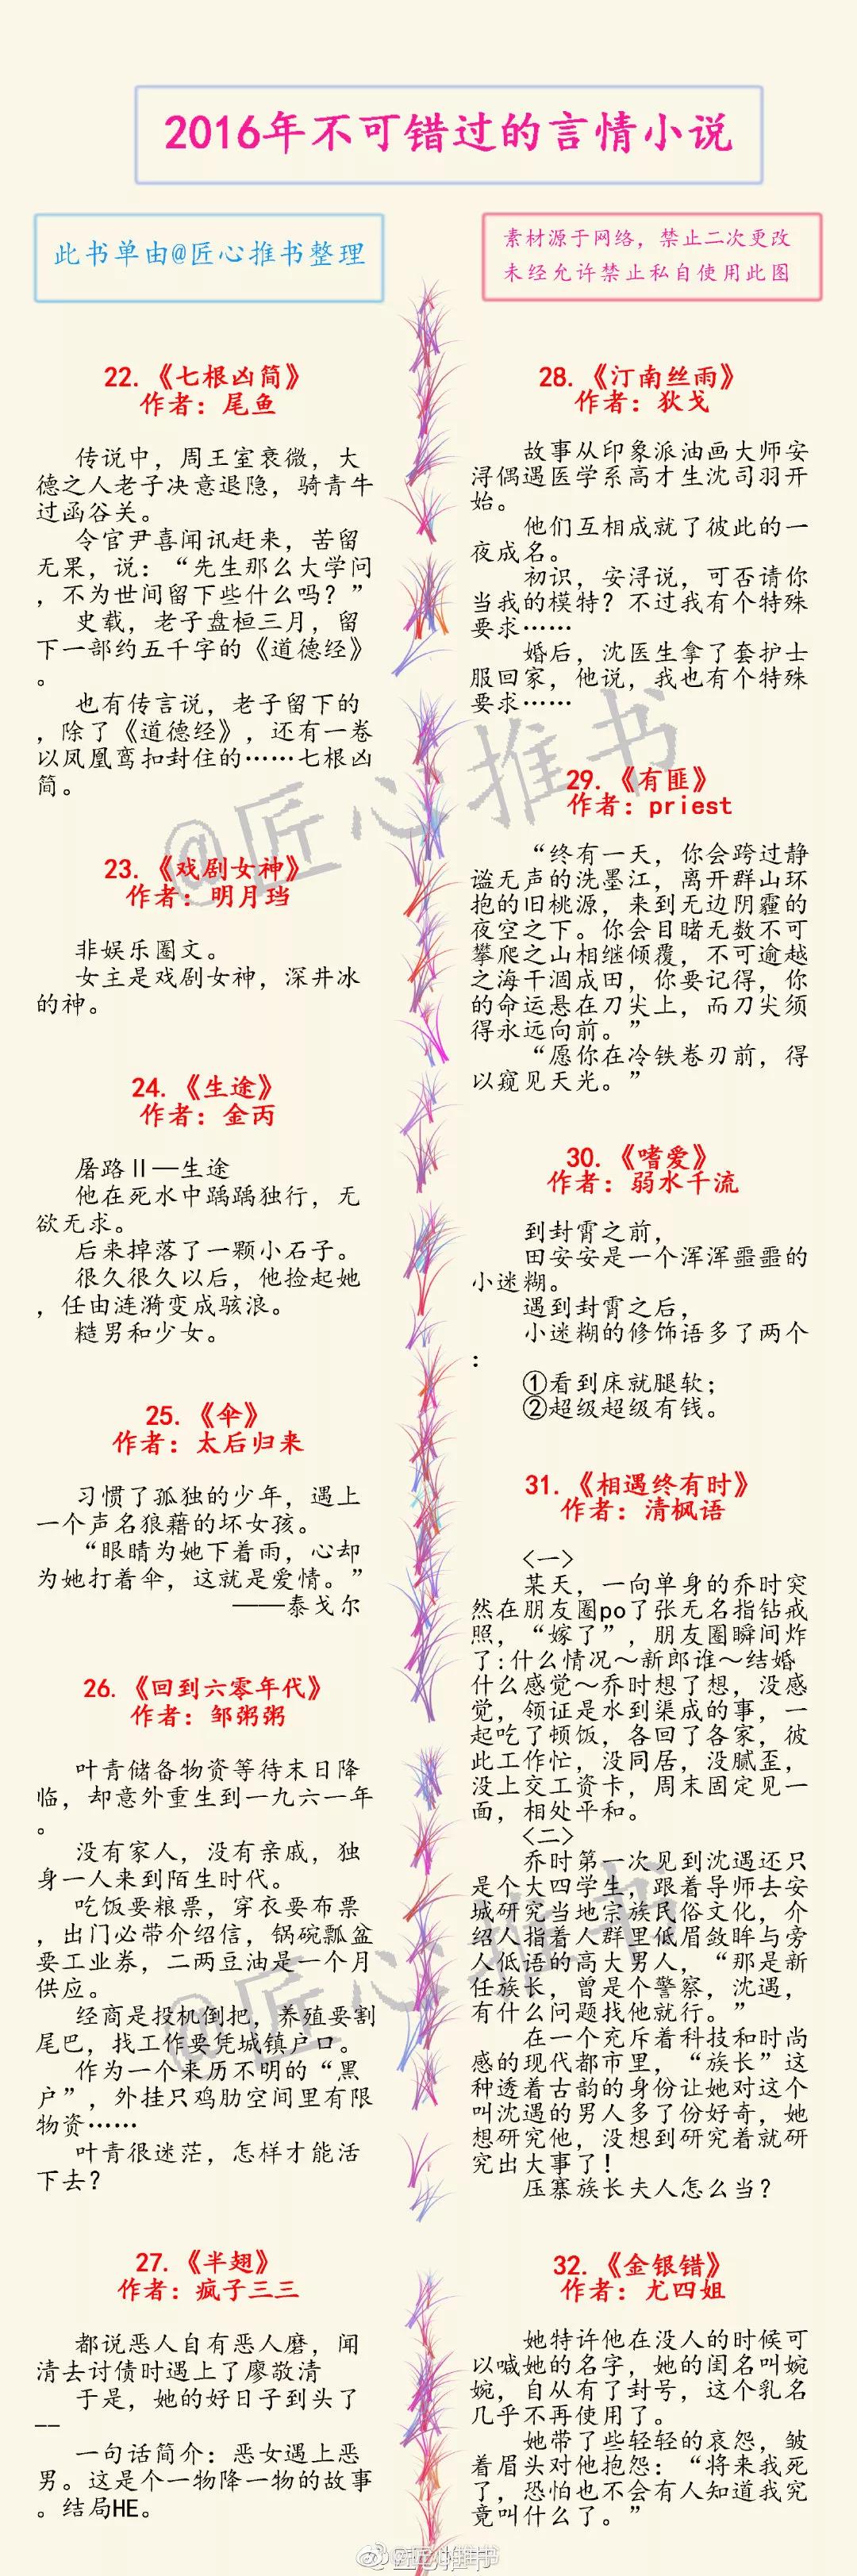 2016年不可错过的言情小说
此书单由@匠心推书整理
素材源于网络，禁止二次更改
未经允许禁止私自使用此图
22.《七根凶简》
作者：尾鱼
传说中，周王室衰微，大
德之人老子决意退隐，骑青牛
过函谷关。
令官尹喜闻讯赶来，苦留
无果，说：“先生那么大学问
，不为世间留下些什么吗？”
史载，老子盘桓三月，留
下一部约五千字的《道德经》
。
也有传言说，老子留下的
，除了《道德经》，还有一卷
以凤凰鸾扣封住的……七根凶
简。
23.《戏剧女神》
作者：明月珰
非娱乐圈文。
女主是戏剧女神，深井冰
的神。
24.《生途》
作者：金丙
屠路Ⅱ—生途
他在死水中踽踽独行，无
欲无求。
后来掉落了一颗小石子。
很久很久以后，他捡起她
，任由涟漪变成骇浪。
糙男和少女。
25.《伞》
作者：太后归来
习惯了孤独的少年，遇上
一个声名狼藉的坏女孩。
“眼睛为她下着雨，心却
为她打着伞，这就是爱情。”
——泰戈尔
26.《回到六零年代》
作者：邹粥粥
叶青储备物资等待末日降
临，却意外重生到一九六一年
。
没有家人，没有亲戚，独
身一人来到陌生时代。
吃饭要粮票，穿衣要布票
，出门必带介绍信，锅碗瓢盆
要工业券，二两豆油是一个月
供应。
经商是投机倒把，养殖要割
尾巴，找工作要凭城镇户口。
作为一个来历不明的“黑
户”，外挂只鸡肋空间里有限
物资……
叶青很迷茫，怎样才能活
下去？
27.《半翅》
作者：疯子三三
都说恶人自有恶人磨，闻
清去讨债时遇上了廖敬清
于是，她的好日子到头了
——
一句话简介：恶女遇上恶
男。这是个一物降一物的故事
。结局HE。
28.《汀南丝雨》
作者：狄戈
故事从印象派油画大师安
浔偶遇医学系高才生沈司羽开
始。
他们互相成就了彼此的一
夜成名。
初识，安浔说，可否请你
当我的模特？不过我有个特殊
要求……
婚后，沈医生拿了套护士
服回家，他说，我也有个特殊
要求……
29.《有匪》
作者：priest
“终有一天，你会跨过静
谧无声的洗墨江，离开群山环
抱的旧桃源，来到无边阴霾的
夜空之下。你会目睹无数不可
攀爬之山相继倾覆，不可逾越
之海干涸成田，你要记得，你
的命运悬在刀尖上，而刀尖须
得永远向前。”
“愿你在冷铁卷刃前，得
以窥见天光。”
30.《嗜爱》
作者：弱水千流
到封霄之前，
田安安是一个浑浑噩噩的
小迷糊。
遇到封霄之后，
小迷糊的修饰语多了两个
：
①看到床就腿软；
②超级超级有钱。
31.《相遇终有时》
作者：清枫语
<一>
某天，一向单身的乔时突
然在朋友圈po了张无名指钻戒
照，“嫁了”，朋友圈瞬间炸
了:什么情况～新郎谁～结婚
什么感觉～乔时想了想，没感
觉，领证是水到渠成的事，一
起吃了顿饭，各回了各家，彼
此工作忙，没同居，没腻歪，
没上交工资卡，周末固定见一
面，相处平和。
<二>
乔时第一次见到沈遇还只
是个大四学生，跟着导师去安
城研究当地宗族民俗文化，介
绍人指着人群里低眉敛眸与旁
人低语的高大男人，“那是新
任族长，曾是个警察，沈遇，
有什么问题找他就行。”
在一个充斥着科技和时尚
感的现代都市里，“族长”这
种透着古韵的身份让她对这个
叫沈遇的男人多了份好奇，她
想研究他，没想到研究着就研
究出大事了！
压寨族长夫人怎么当？
32.《金银错》
作者：尤四姐
她特许他在没人的时候可
以喊她的名字，她的闺名叫婉
婉，自从有了封号，这个乳名
几乎不再使用了。
她带了些轻轻的哀怨，皱
着眉头对他抱怨：“将来我死
了，恐怕也不会有人知道我究
竟叫什么了。”
@匠心推书
@匠心推书
@匠心推书